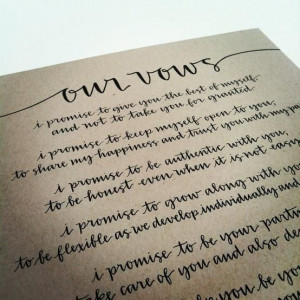 our vows
i promise to give you the best of myself
and not to take you for granted
i promise to keep myself open to you,
to share my happiness and trust you with my
i promise to be authentic with you,
to be honest even when it is not easy
i promise to grow along with you
to be flexible as we develop individually and
i promise to be your
take care of you and also
you be you